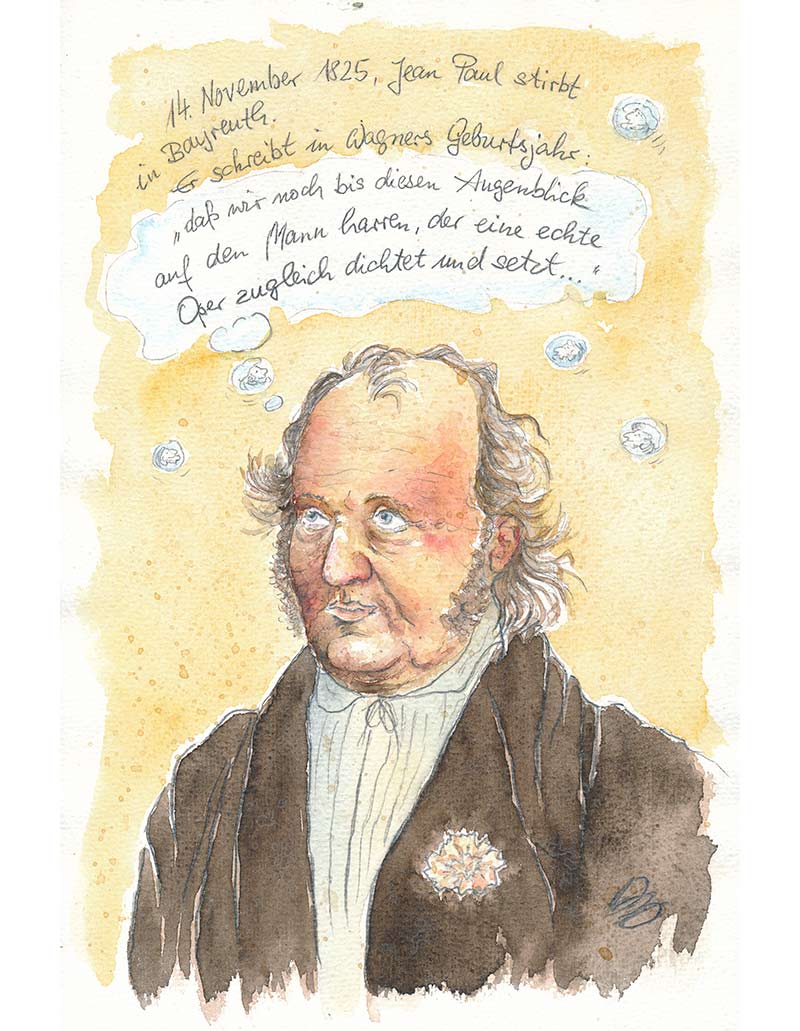 14. November 1825, Jean Paul stirbt
in Bayreuth.
Er schreibt in Wagners Geburtsjahr:
„daß wir noch bis diesen Augenblick
auf den Mann harren, der eine echte
Oper zugleich dichtet und setzt..."